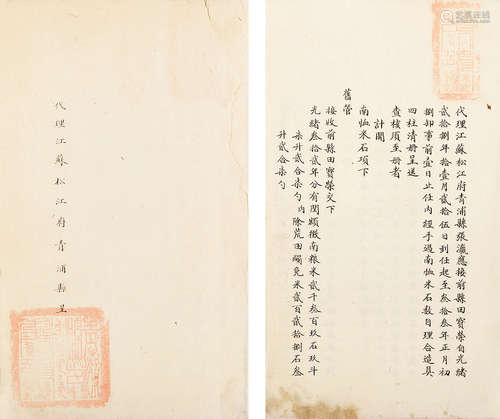 代理江蘇松江府青浦縣呈
代理江蘇松江府青浦縣張瀛應接前縣田寶榮自光緒
貳拾捌年拾壹月貳拾伍日到任起至叁拾叁年正月初
捌卸事前壹日止任內經手過南恤米石數目理合造具
四柱清冊呈送
查核須至冊者
計開
南恤米石項下
舊管
接收前縣田寶榮交下
光緒叁拾貳年分有閏額徵南粮米貳千叁百玖石玖斗
柒升貳合柒勺內除荒田蠲免米貳百貳拾捌石叁
升貳合柒勺